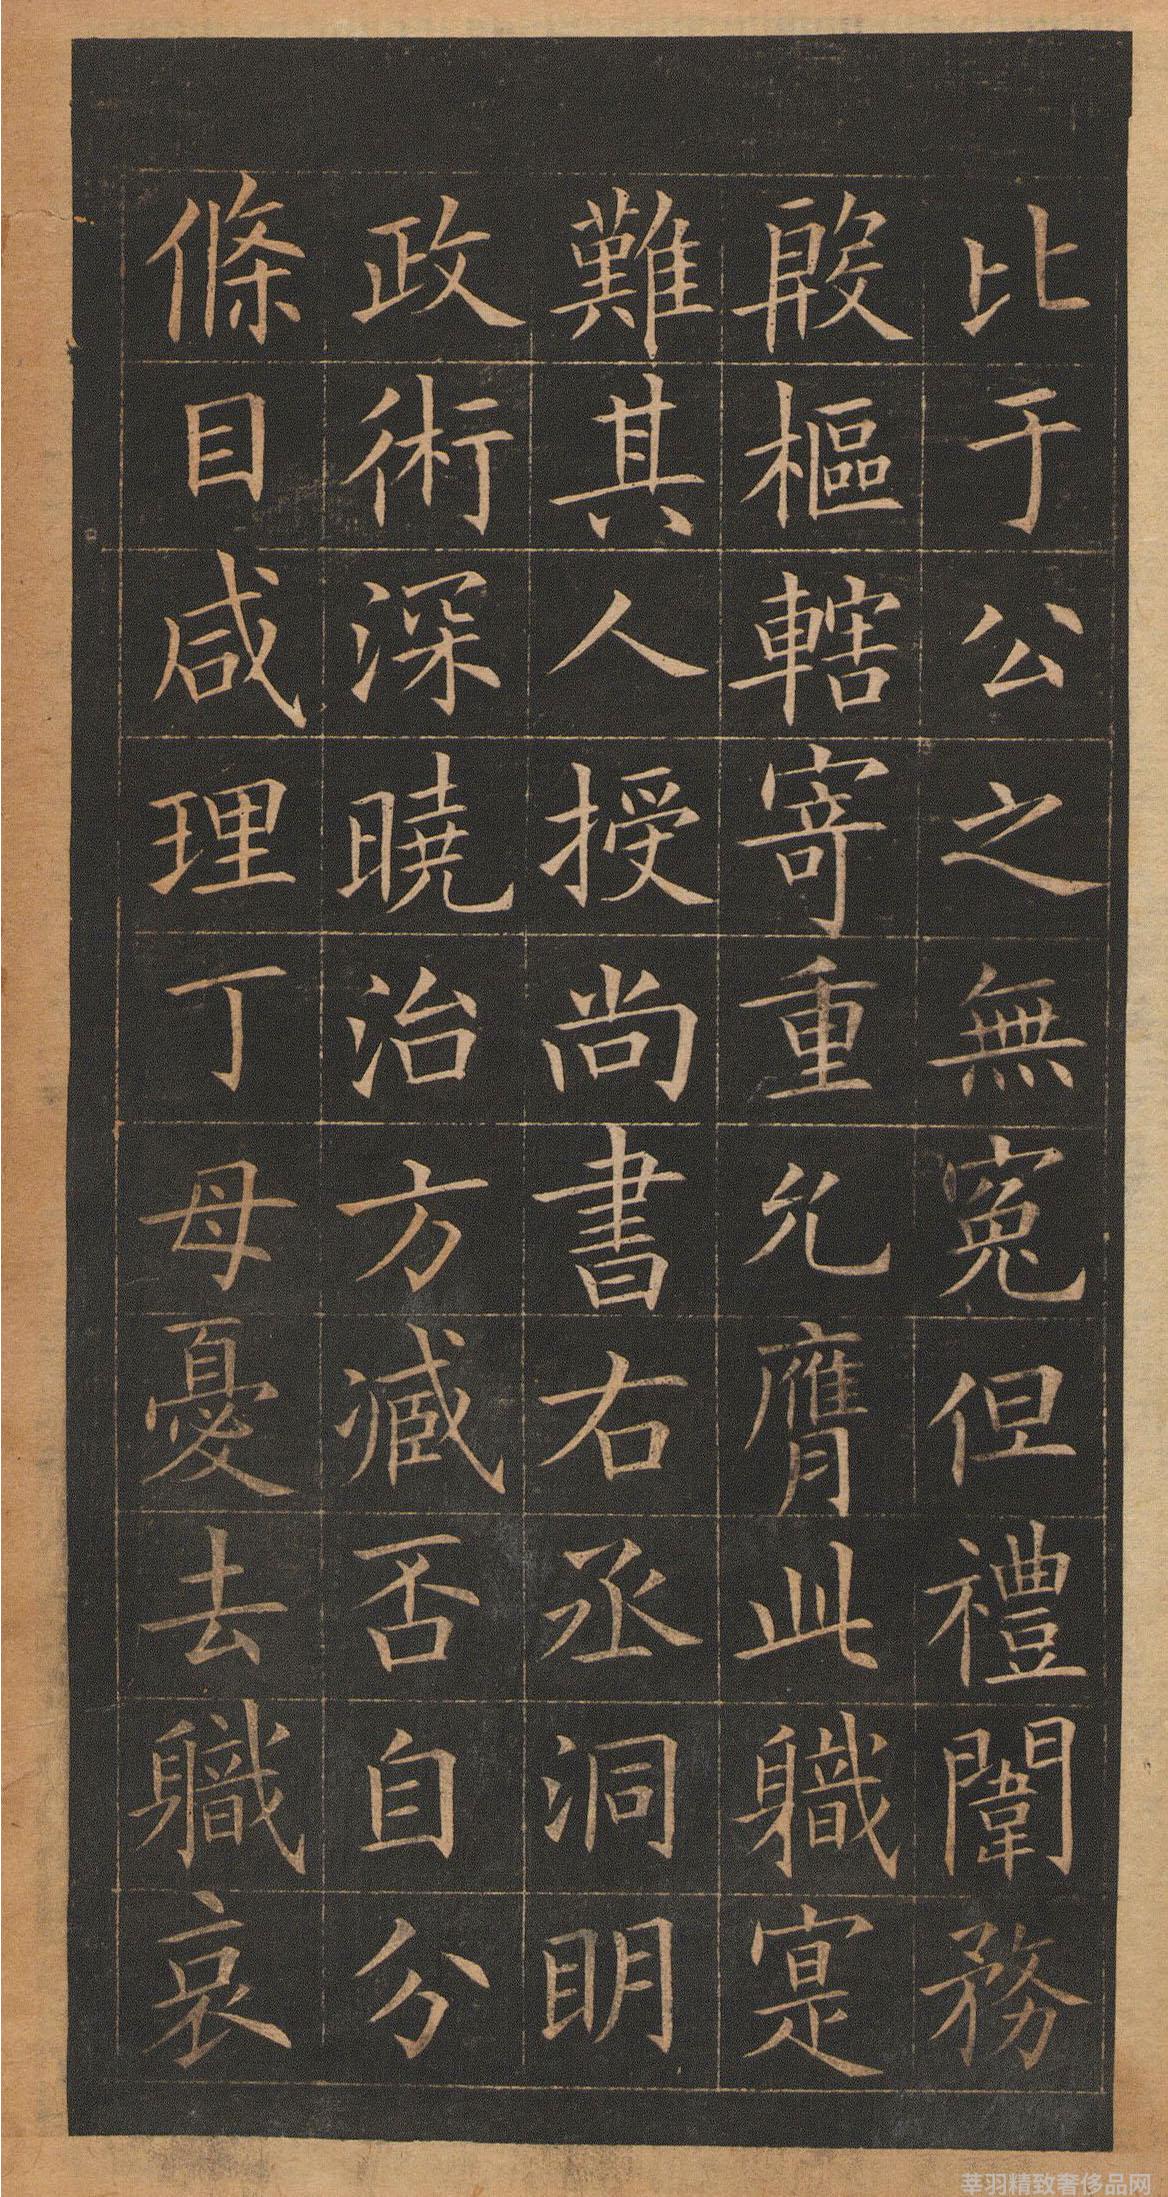 比于公之無冤但禮闈務
殷樞轄寄重允膺此職寔
難其人授尚書右丞洞明
政術深曉治方臧否自分
條目咸理丁母憂去職哀
莘羽精致奢侈品网